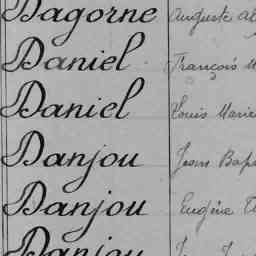 Dagorne Auguste Al
Daniel François M
Daniel Louis Marie
Danjou Jean Bap
Danjou Eugène
Danjou Jean